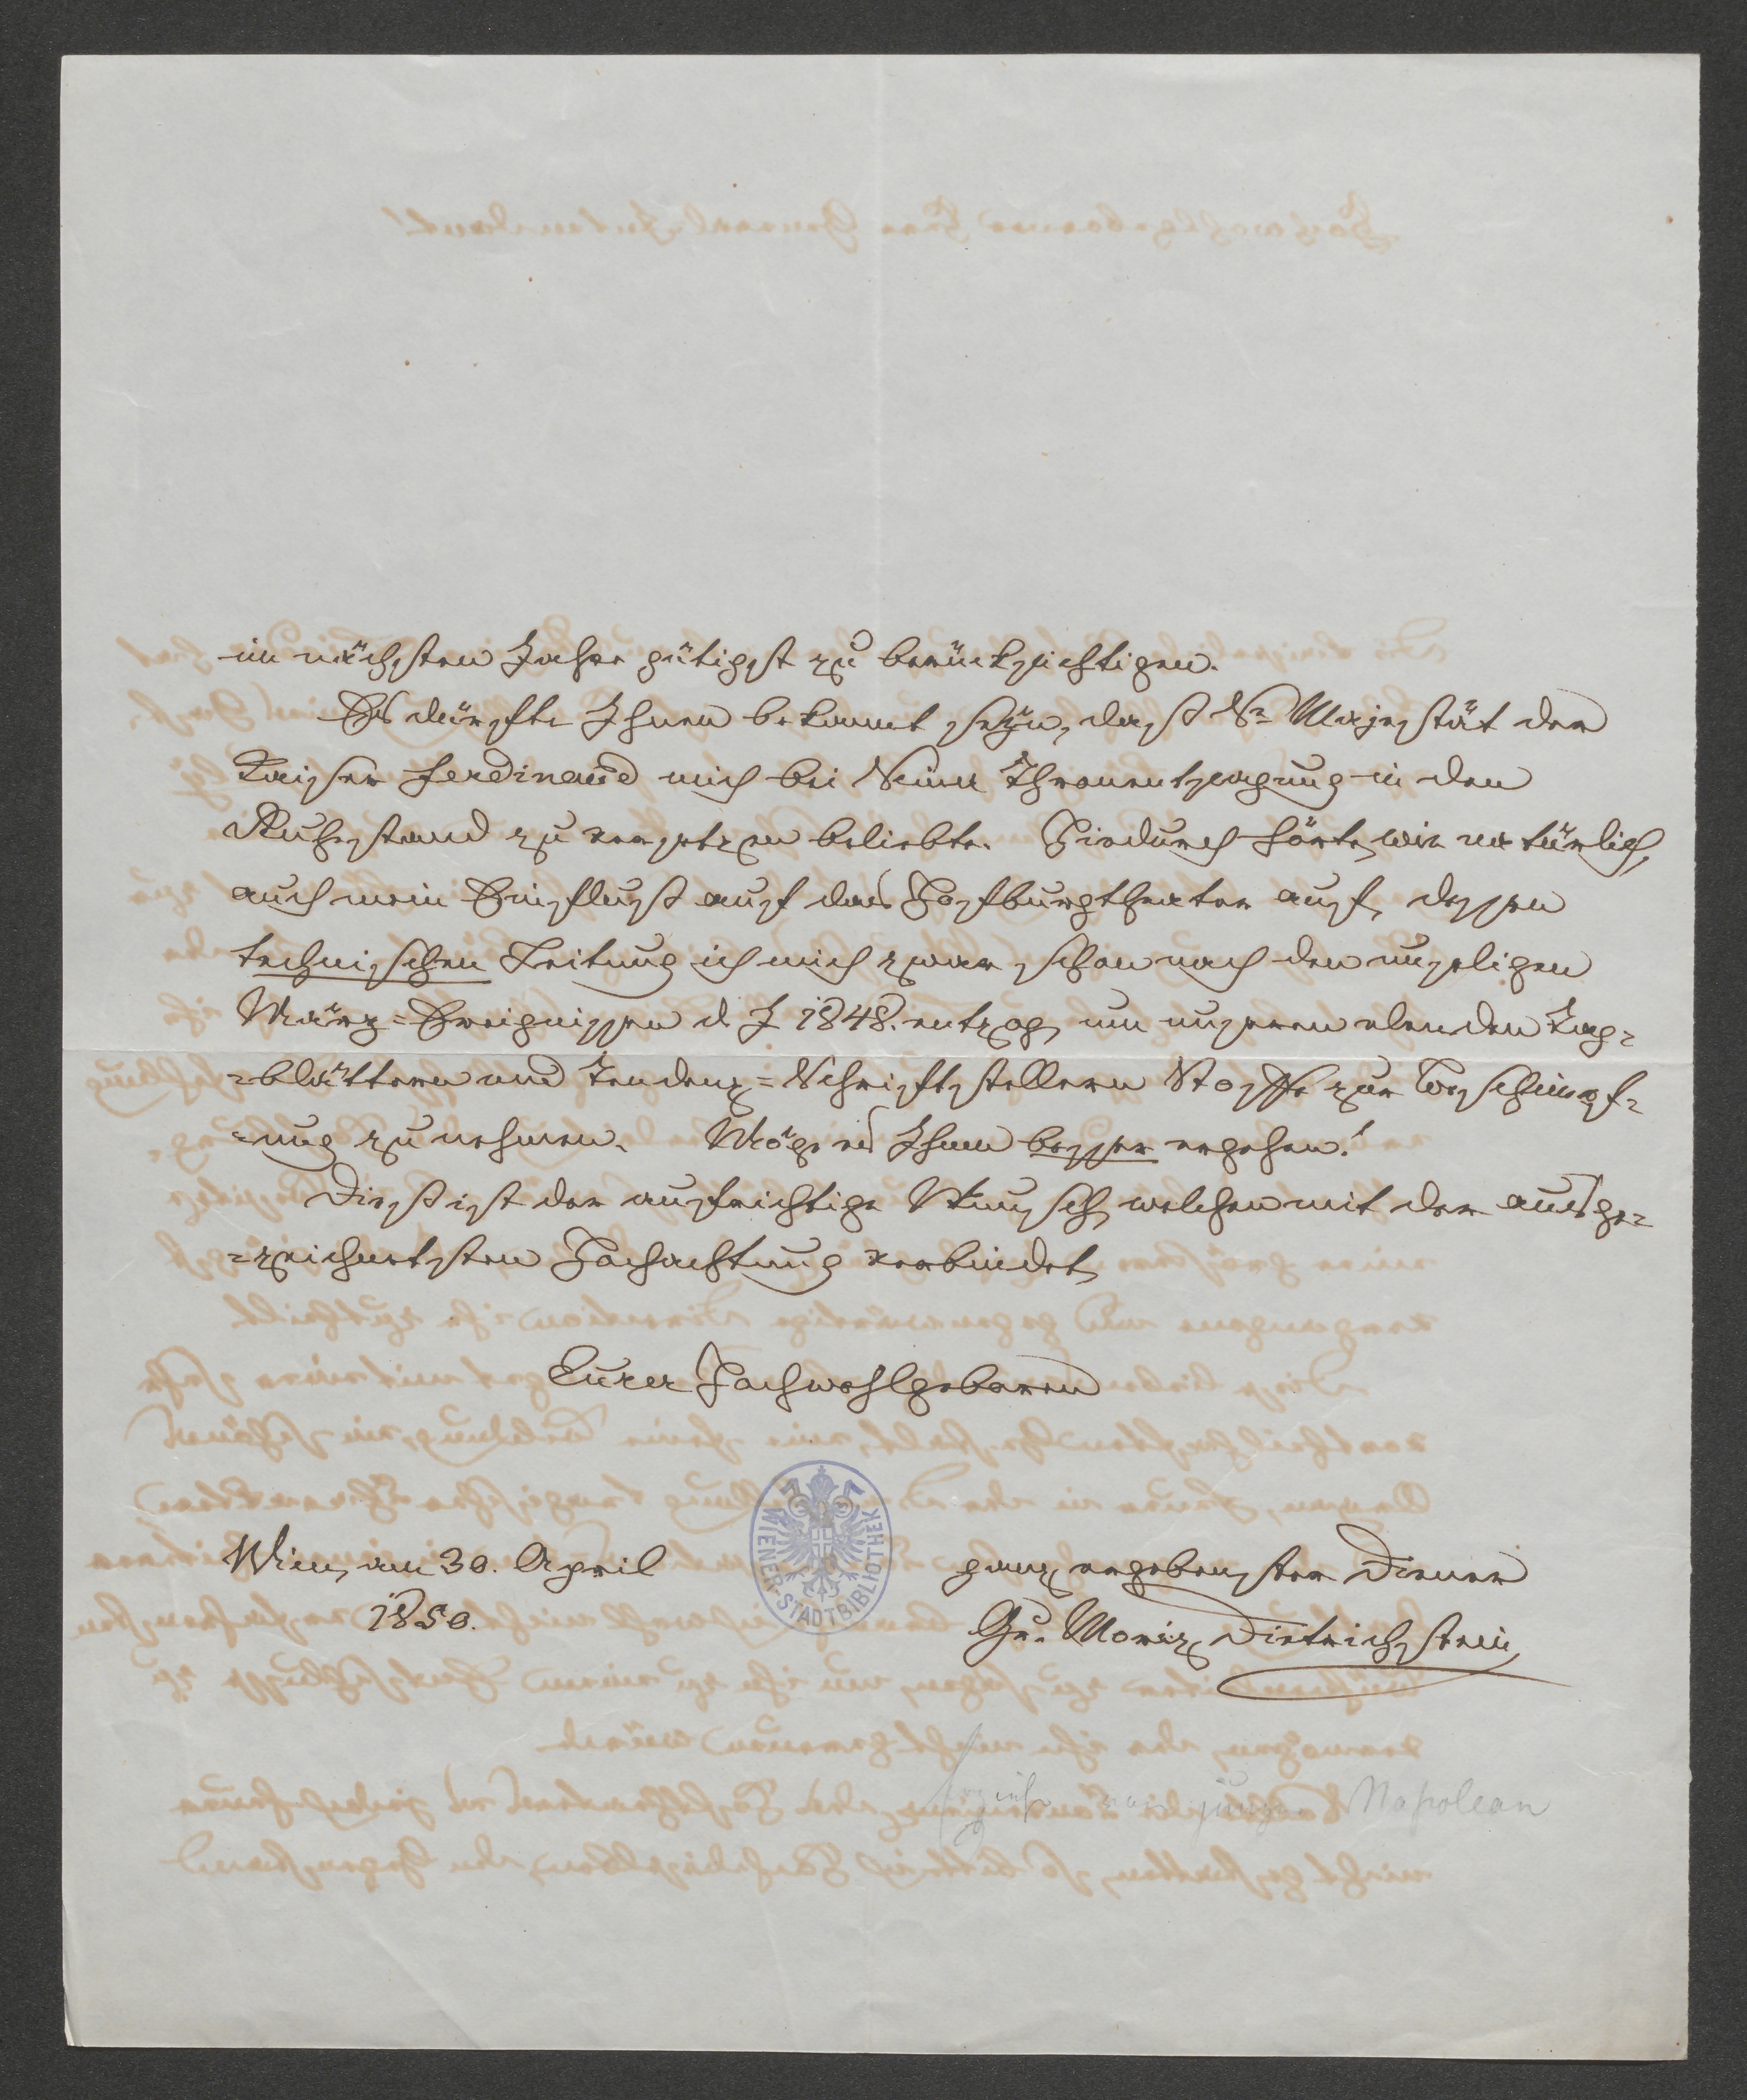 im nächsten Jahre gütigst zu berücksichtigen.
Es dürfte Ihnen bekannt seyn, daß Se Majestät der
Kaiser Ferdinand mich bei Seiner Thronentsagung in den
Ruhestand zu versetzen beliebte. Hiedurch hörte, wie natürlich,
auch mein Einfluß auf das Hofburgtheater auf, dessen
technischen Leitung ich mich zwar schon nach den unseligen
März=Ereignissen d. J. 1848. entzog, um unseren elenden Tag=
=blättern und Tendenz=Schriftstellern Stoffe zur Beschimpf=
=ung zu nehmen. Möge es Ihnen besser ergehen!
Dieß ist der aufrichtige Wunsch, welchen mit der ausge=
=zeichnetsten Hochachtung verbindet,
Eurer Hochwohlgeboren
Wien, am 30. April
1850.
ganz ergebenster Diener
Gr. Moriz Dietrichstein
WIENER STADTBIBLIOTHEK
jungen Napoleon